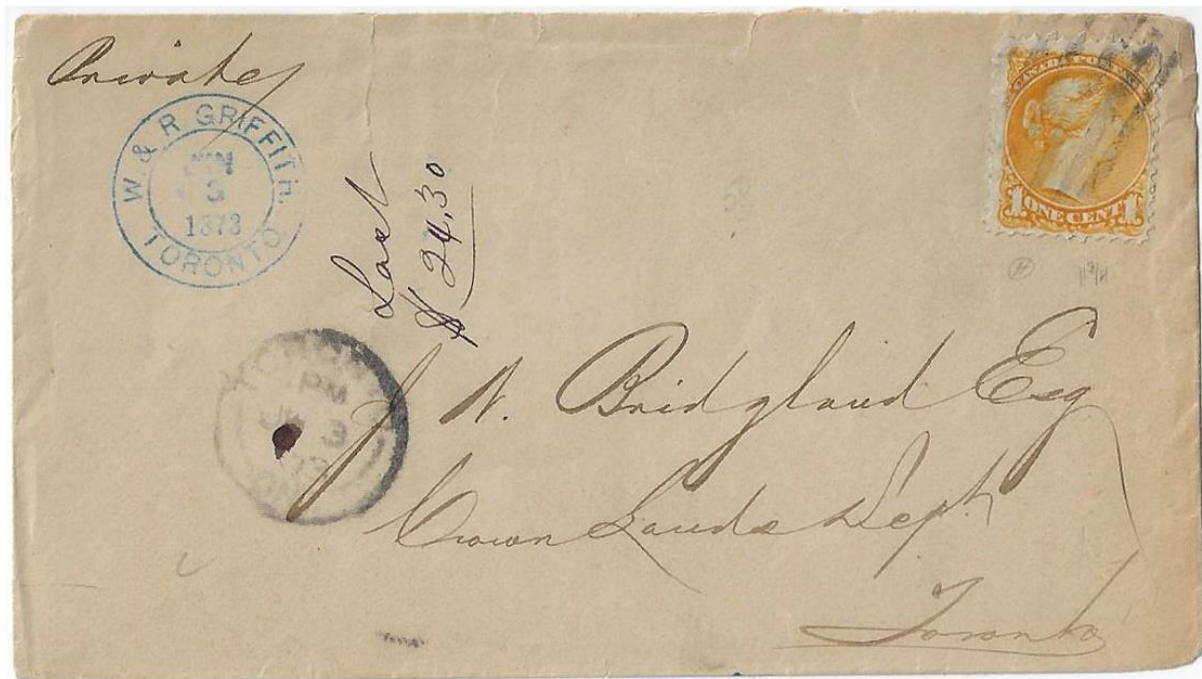 Private
W. & R GRIFFITH.
3
1873
TORONTO
CANADA POSTAGE
1 ONE CENT 1
Last
$ 24.30
PM
3
J. W. Bridgland Esq
Crown Lands Dept
Toronto